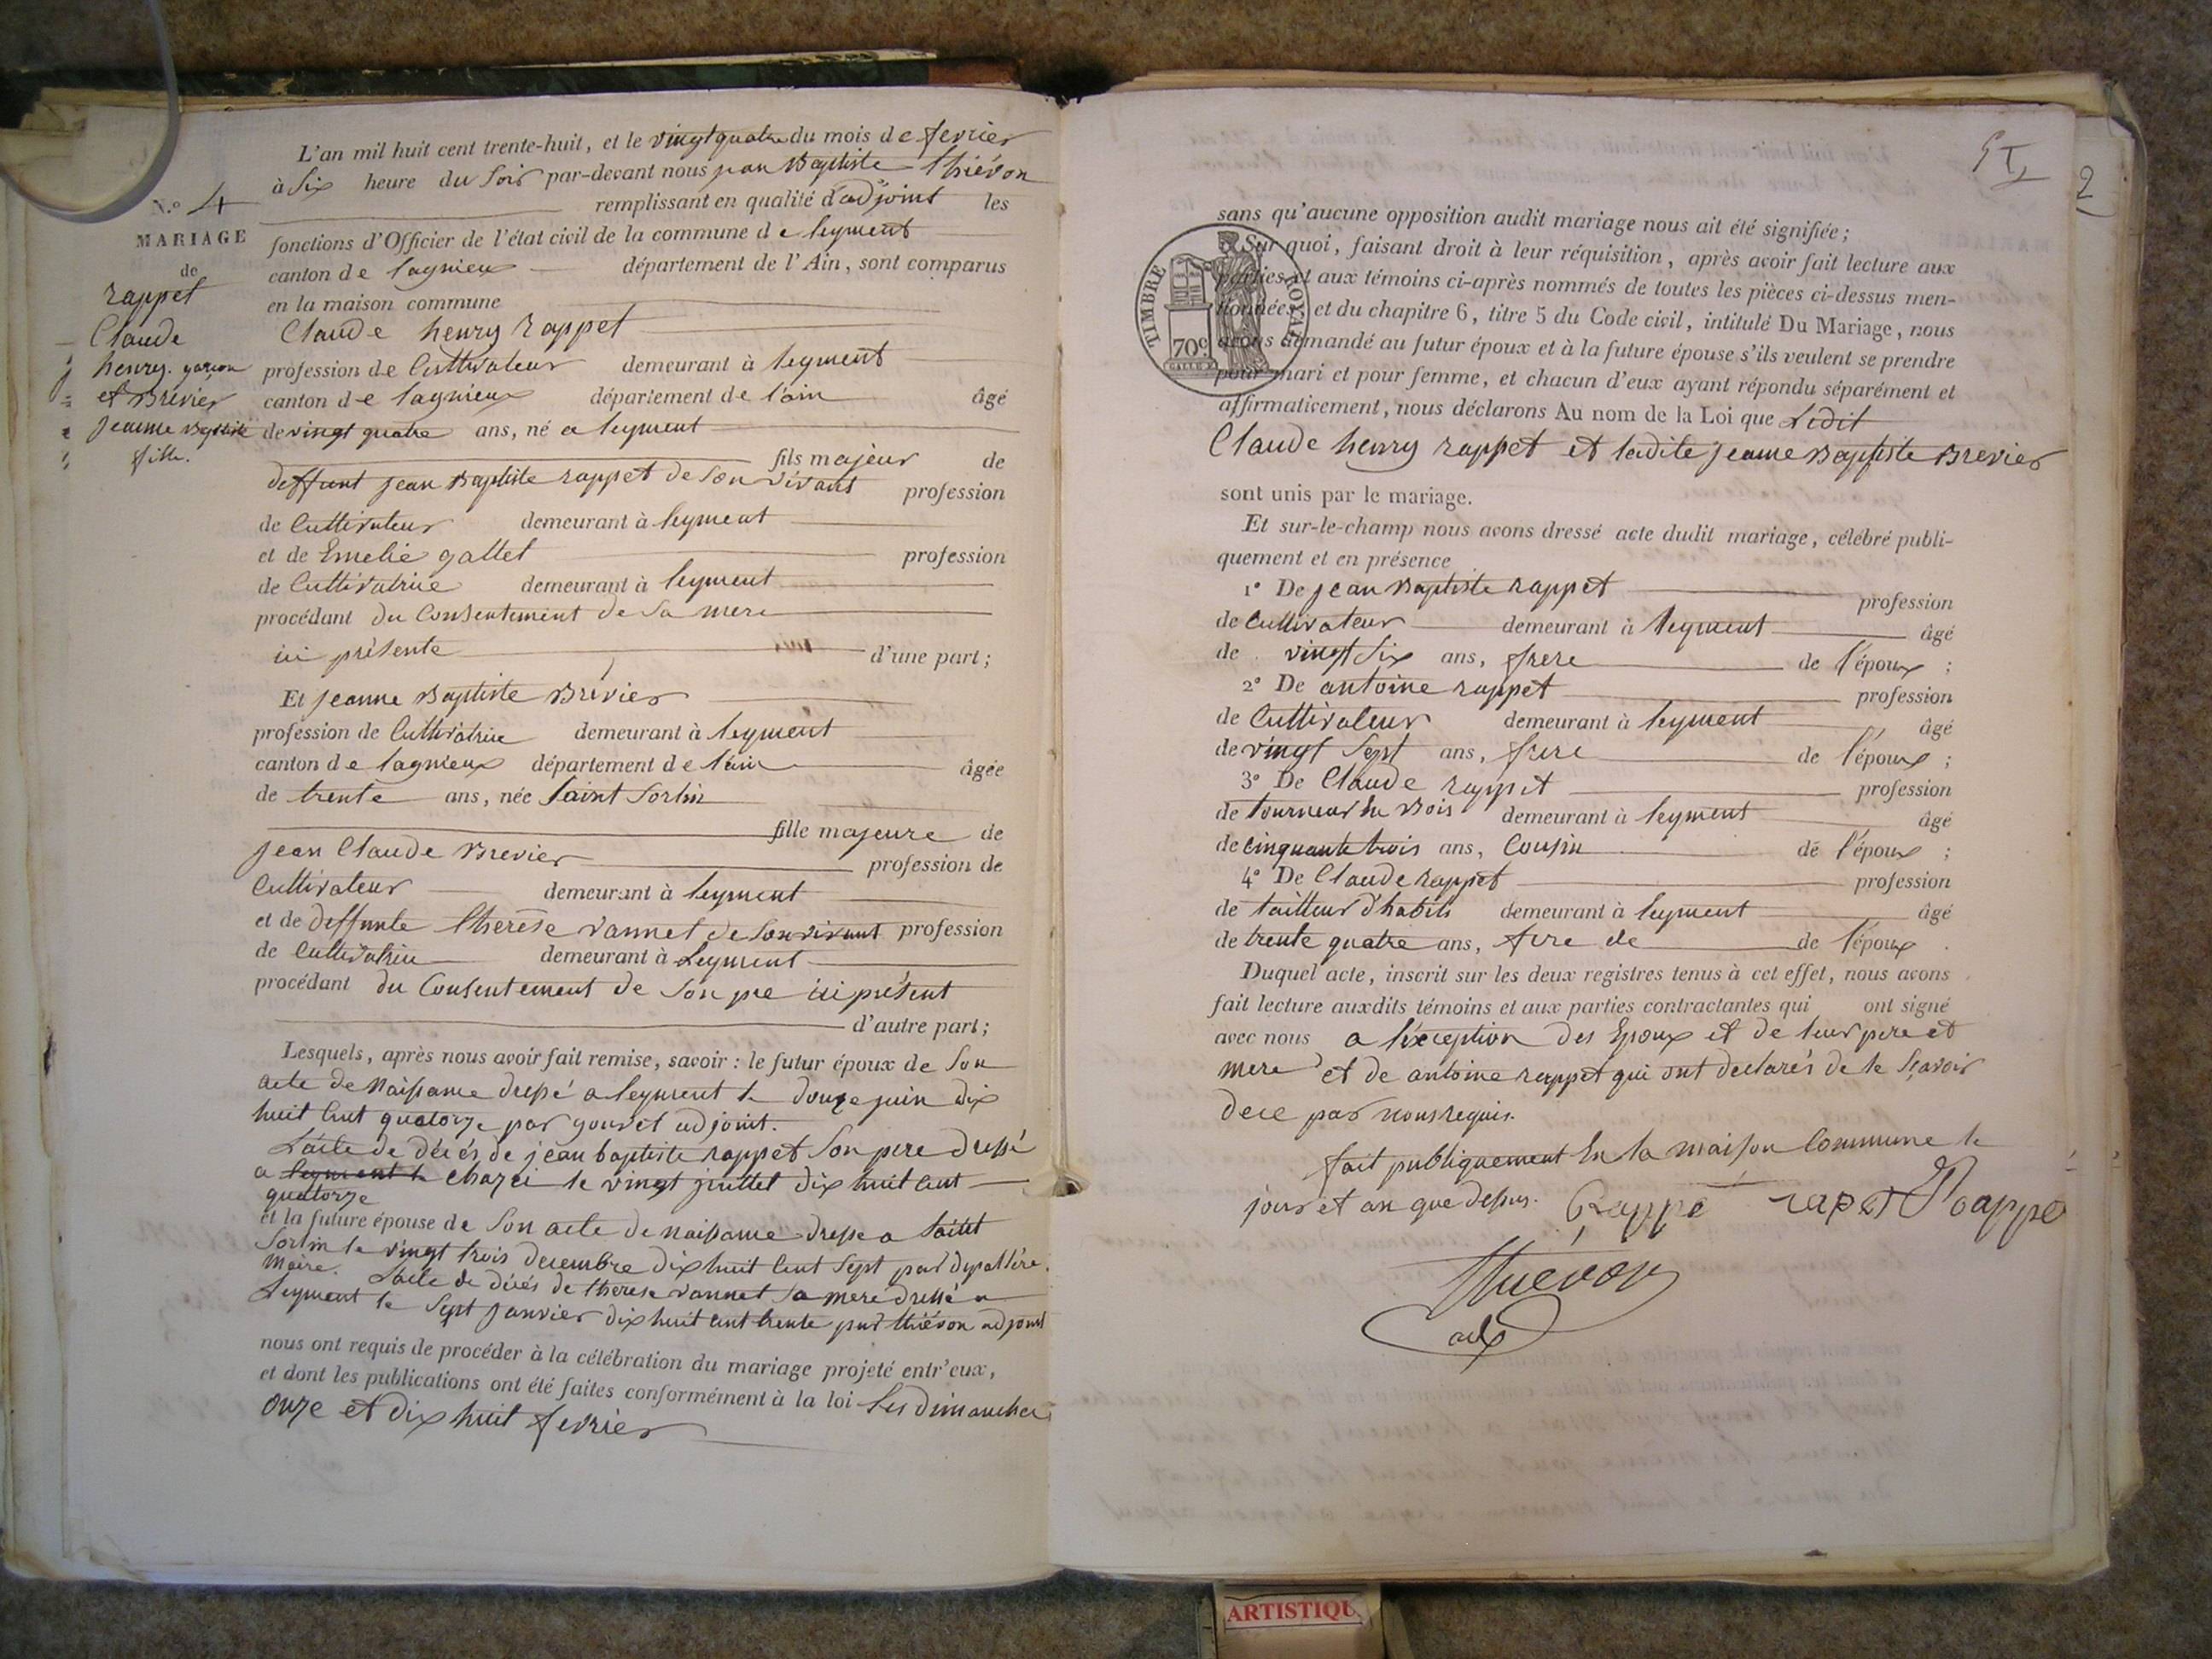 L'an mil huit cent trente-huit, et le vingt quatre du mois de fevrier
à Six heure du Soir par-devant nous jean Baptiste thiévon
remplissant en qualité d'adjoint les
fonctions d'Officier de l'état civil de la commune de leyment
canton de lagnieu département de l'Ain, sont comparus
en la maison commune
N.° 4
MARIAGE
de
rappet
Claude
henry. garçon
et Brevier
jeanne Baptiste
fille.
Claude henry rappet
profession de Cultivateur demeurant à leyment
canton de lagnieux département de l'ain âgé
de vingt quatre ans, né a leyment
fils majeur de
deffunt jean Baptiste rappet de Son vivant profession
de Cultivateur demeurant à leyment
et de Emelie gallet profession
de Cultivatrice demeurant à leyment
procédant du Consentement de Sa mere
ici présente d'une part;
Et jeanne Baptiste Brevier
profession de Cultivatrice demeurant à leyment
canton de lagnieux département de l'ain âgée
de trente ans, née Saint Sorlin
fille majeure de
jean Claude Brevier profession de
Cultivateur demeurant à leyment
et de deffunte therèse vannet de Son vivant profession
de Cultivatrice demeurant à Leyment
procédant du Consentement de Son pre ici présent
d'autre part;
Lesquels, après nous avoir fait remise, savoir : le futur époux de Son
acte de Naissance dressé a leyment le douze juin dix
huit Cent quatorze par adjoint.
L'acte de décés de jean baptiste rappet Son pere dressé
a leyment le chazei le vingt juillet dix huit Cent
quatorze
et la future épouse de Son acte de naissance dressé a Saint
Sorlin le vingt trois decembre dix huit Cent Sept par
Maire. L'acte de décés de therese vannet Sa mere dressé a
Leyment le Sept janvier dix huit Cent trente par thiévon adjoint
nous ont requis de procéder à la célébration du mariage projeté entr'eux,
et dont les publications ont été faites conformément à la loi Les dimanches
onze et dix huit fevrier
2
TIMBRE ROYAL
70c
sans qu'aucune opposition audit mariage nous ait été signifiée;
Sur quoi, faisant droit à leur réquisition, après avoir fait lecture aux
parties et aux témoins ci-après nommés de toutes les pièces ci-dessus men-
tionnées, et du chapitre 6, titre 5 du Code civil, intitulé Du Mariage, nous
avons demandé au futur époux et à la future épouse s'ils veulent se prendre
pour mari et pour femme, et chacun d'eux ayant répondu séparément et
affirmativement, nous déclarons Au nom de la Loi que Ledit
Claude henry rappet et ladite jeanne Baptiste Brevier
sont unis par le mariage.
Et sur-le-champ nous avons dressé acte dudit mariage, célébré publi-
quement et en présence
1° De jean Baptiste rappet profession
de Cultivateur demeurant à leyment âgé
de vingt Six ans, frere de l'époux ;
2° De antoine rappet profession
de Cultivateur demeurant à leyment âgé
de vingt Sept ans, frere de l'époux ;
3° De Claude rappet profession
de tourneur En Bois demeurant à leyment âgé
de cinquante trois ans, Cousin de l'époux ;
4° De Claude rappet profession
de tailleur d'habits demeurant à leyment âgé
de trente quatre ans, frere de de l'époux .
Duquel acte, inscrit sur les deux registres tenus à cet effet, nous avons
fait lecture auxdits témoins et aux parties contractantes qui ont signé
avec nous a l'éxception des Epoux et de leur pere et
mere et de antoine rappet qui ont declarés de le Sçavoir
dece par nous requis.
fait publiquement En la maison Commune le
jour et an que dessus. Rappe rapet Rappe
thiévon
adj
ARTISTIQU